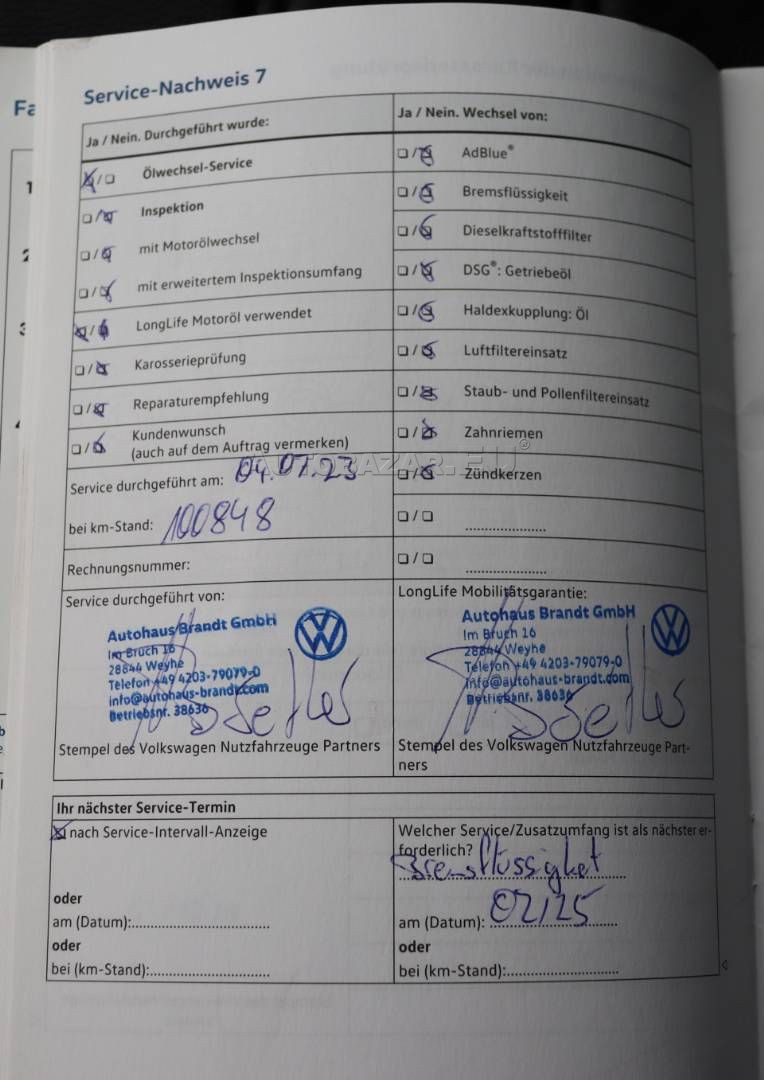 Fa
Service-Nachweis 7
Ja / Nein. Durchgeführt wurde:
Ja / Nein. Wechsel von:
Ölwechsel-Service
AdBlue®
Inspektion
Bremsflüssigkeit
mit Motorölwechsel
Dieselkraftstofffilter
mit erweitertem Inspektionsumfang
DSG®: Getriebeöl
LongLife Motoröl verwendet
Haldexkupplung: Öl
Karosserieprüfung
Luftfiltereinsatz
Reparaturempfehlung
Staub- und Pollenfiltereinsatz
Kundenwunsch
(auch auf dem Auftrag vermerken)
Zahnriemen
AUTOBAZAR.EU®
Service durchgeführt am: 04.07.23
Zündkerzen
bei km-Stand: 100848
Rechnungsnummer:
Service durchgeführt von:
Autohaus Brandt GmbH
Im Bruch 16
28844 Weyhe
Telefon +49 4203-79079-0
info@autohaus-brandt.com
Betriebsnr. 38636
Stempel des Volkswagen Nutzfahrzeuge Partners
LongLife Mobilitätsgarantie:
Autohaus Brandt GmbH
Im Bruch 16
28844 Weyhe
Telefon +49 4203-79079-0
info@autohaus-brandt.com
Betriebsnr. 38636
Stempel des Volkswagen Nutzfahrzeuge Part-
ners
Ihr nächster Service-Termin
nach Service-Intervall-Anzeige
oder
am (Datum):
oder
bei (km-Stand):
Welcher Service/Zusatzumfang ist als nächster er-
forderlich?
Bremsflüssigket
am (Datum): 02/25
oder
bei (km-Stand):